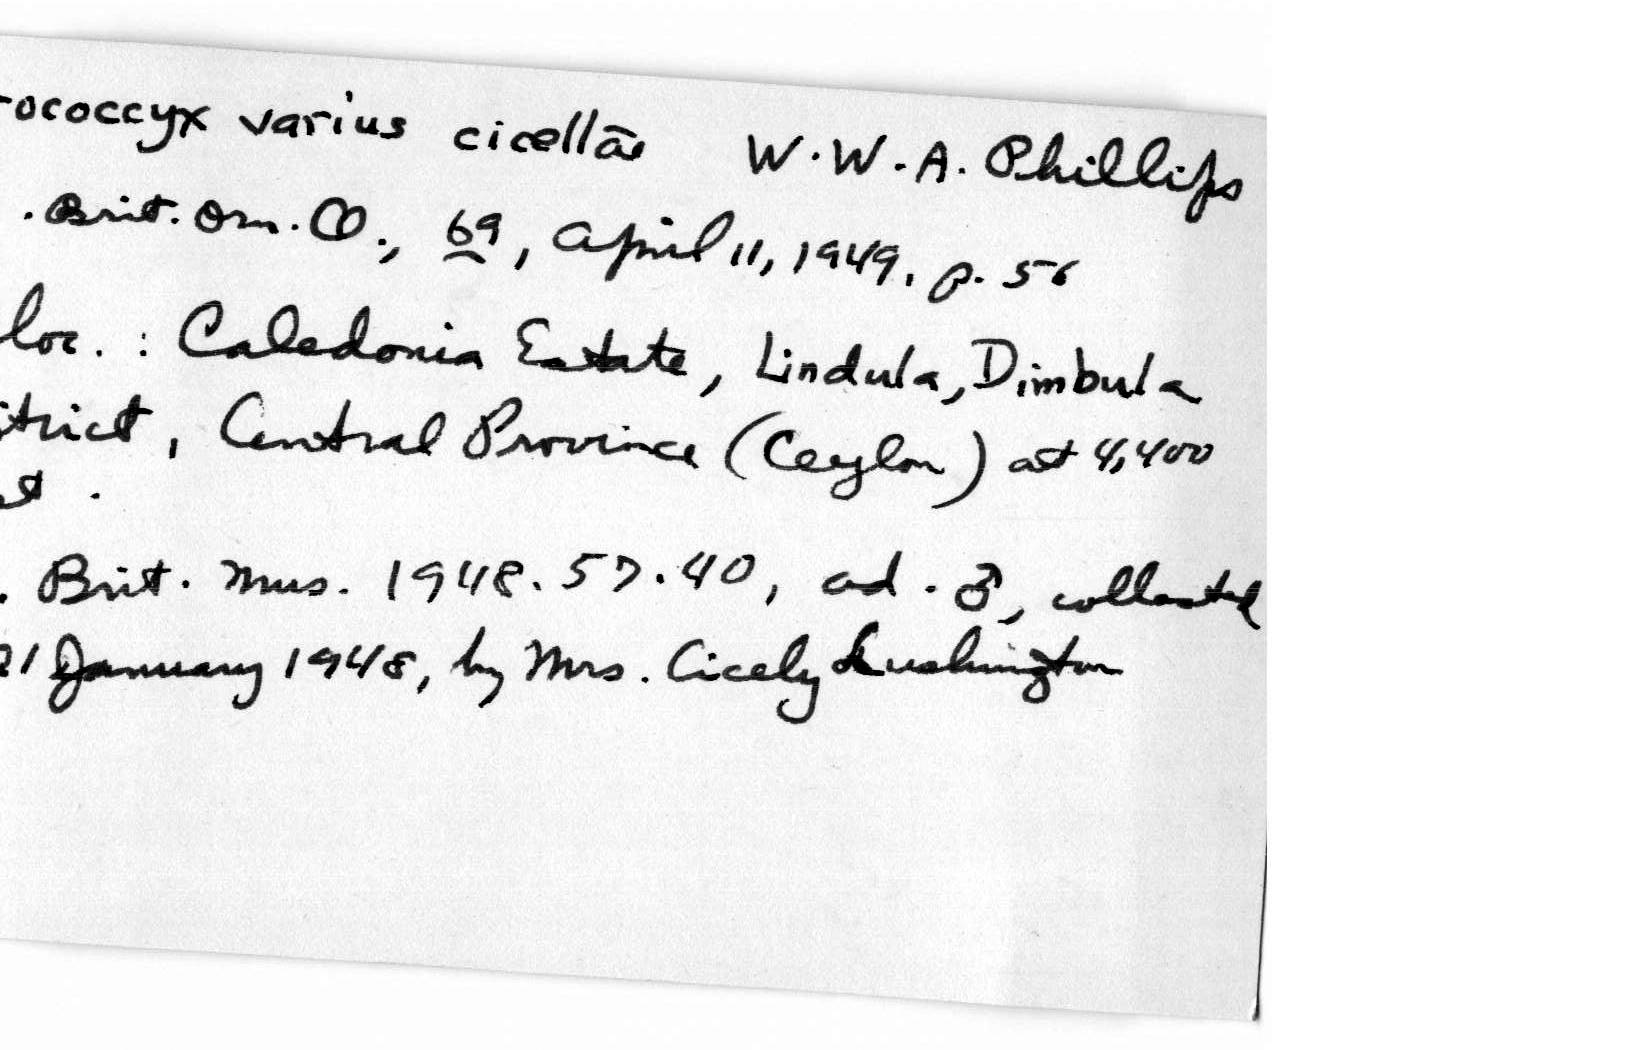 rococcyx varius cicellae W.W.A. Phillips
. Brit. Orn. Cl., 69, April 11, 1949, p. 56
loc. : Caledonia Estate, Lindula, Dimbula
strict, Central Province (Ceylon) at 4,400
et.
. Brit. Mus. 1948.57.40, ad. ♂, collected
21 January 1948, by Mrs. Cicely Lushington